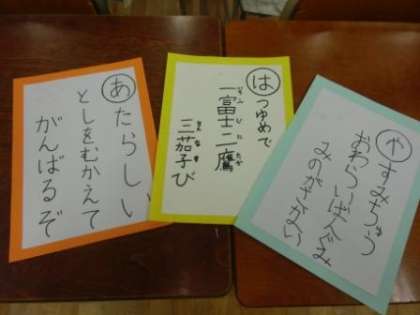 やすみちゅう
おわらいばんぐみ
みのがさない
はつゆめで
一富士二鷹
三茄子び
あたらしい
としをむかえて
がんばるぞ